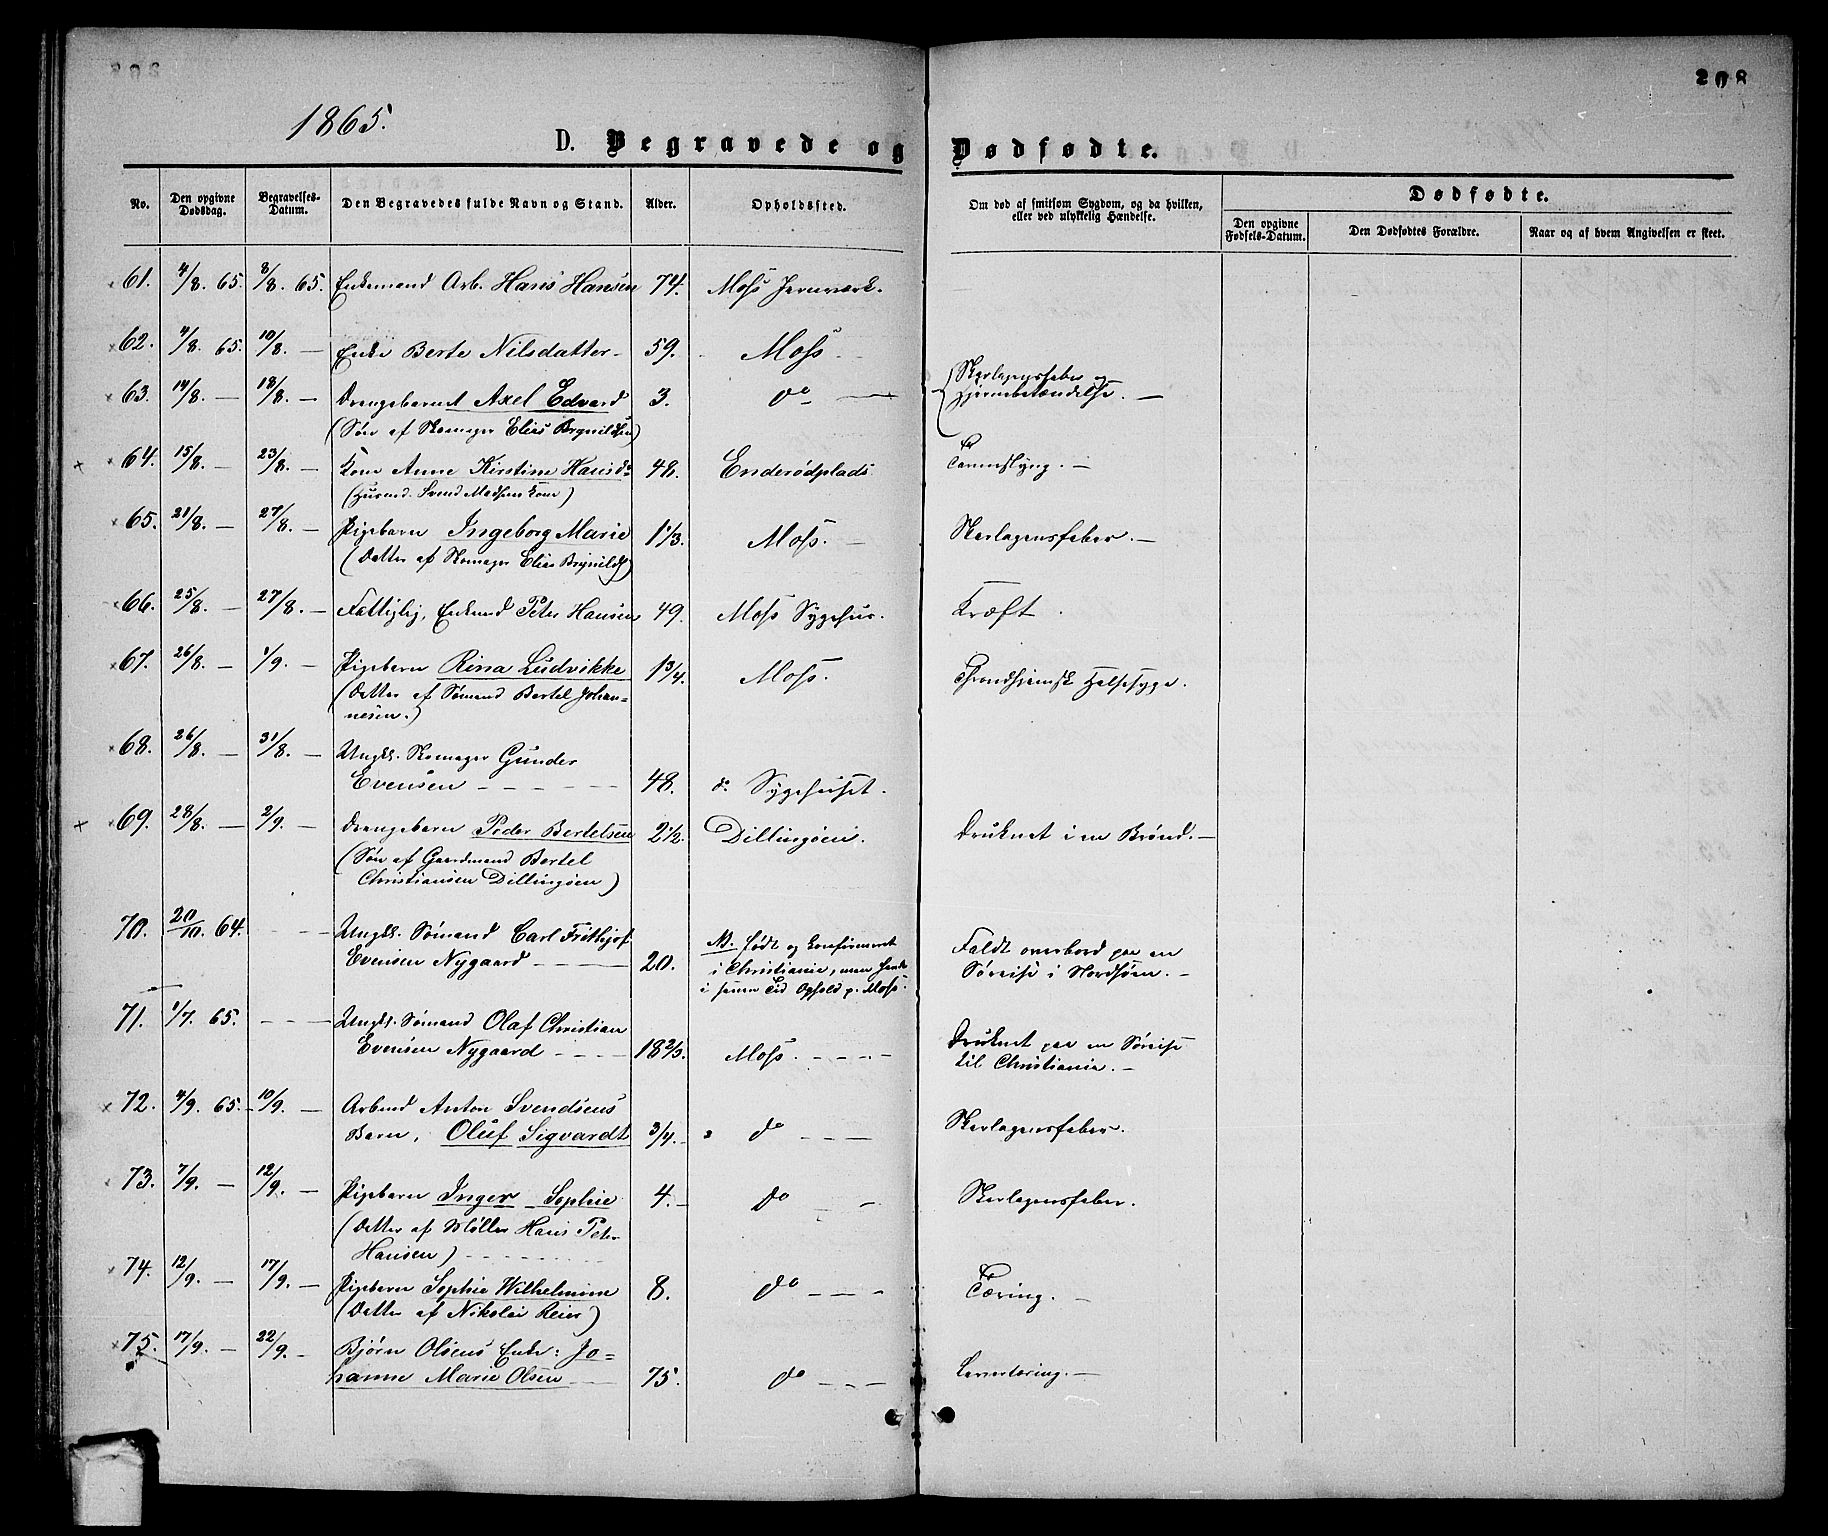 208
1865.
D. Begravede og Dødfødte.
No. Den opgivne Dødsdag. Begravelses-Datum. Den Begravedes fulde Navn og Stand. Alder. Opholdssted. Om død af smitsom Sygdom, og da hvilken, eller ved ulykkelig Hændelse. Dødfødte.
Den opgivne Fødsels-Datum. Den Dødfødtes Forældre. Naar og af hvem Angivelsen er skeet.
61. 4/8. 65. 8/8. 65. Enkemand Arb. Hans Hansen 74. Moss Jernværk.
62. 4/8. 65. 10/8. — Enke Berte Nilsdatter 59. Moss
63. 14/8. — 18/8. — Drengebarnet Axel Edvard 3. do — Skarlagensfeber og
Hjernebetændelse. —
(Søn af Skomager Elias Brynildsen)
64. 15/8. — 23/8. — Kone Anne Kirstine Hansdr 48. Enderødplads
(Husmd. Svend Madsens Kone)
65. 21/8. — 27/8. — Pigebarn Ingeborg Marie 1 1/3. Moss. — Skarlagensfeber. —
(Datter af Skomager Elias Brynilds)
66. 25/8. — 27/8. — Fattiglej, Enkemd Peter Hansen 49. Moss Sygehus. Kræft.
67. 26/8. — 1/9. — Pigebarn Rina Ludvikke 1 3/4. Moss. Throndhjemsk Halssyge.
(Datter af Sømand Bertel Johan=
nesen.)
68. 26/8. — 31/8. — Ungk. Skomager Gunder
Evensen 48. do Sygehuset.
69. 28/8. — 2/9. — Drengebarn Peder Bertelsen 2 1/2. Dillingøen. Druknet i en Brønd. —
(Søn af Gaardmand Bertel
Christiansen Dillingøen)
70. 20/10. 64. — Ungk. Sømand Carl Frithjof
Evensen Nygaard 20. NB. født og konfirmeret
i Christiania, men havde
i senere Tid Ophold p. Moss. Faldt overbord paa en
Søreise i Nordsøen. —
71. 1/7. 65. — Ungk. Sømand Olaf Christian
Evensen Nygaard 18 2/3. Moss. Druknet paa en Søreise
til Christiania. —
72. 4/9. 65. 10/9. — Arbmd Anton Svendsens
Barn, Oluf Sigvardt 3/4. do Skarlagensfeber.
73. 7/9. — 12/9. — Pigebarn Inger Sophie 4. do Skarlagensfeber.
(Datter af Møller Hans Peter
Hansen)
74. 12/9. — 17/9. — Pigebarn Sophie Wilhelmine 8. do Tæring. —
(Datter af Nikolai Reier)
75. 17/9. — 22/9. — Bjørn Olsens Enke: Jo=
hanne Marie Olsen 75. do —